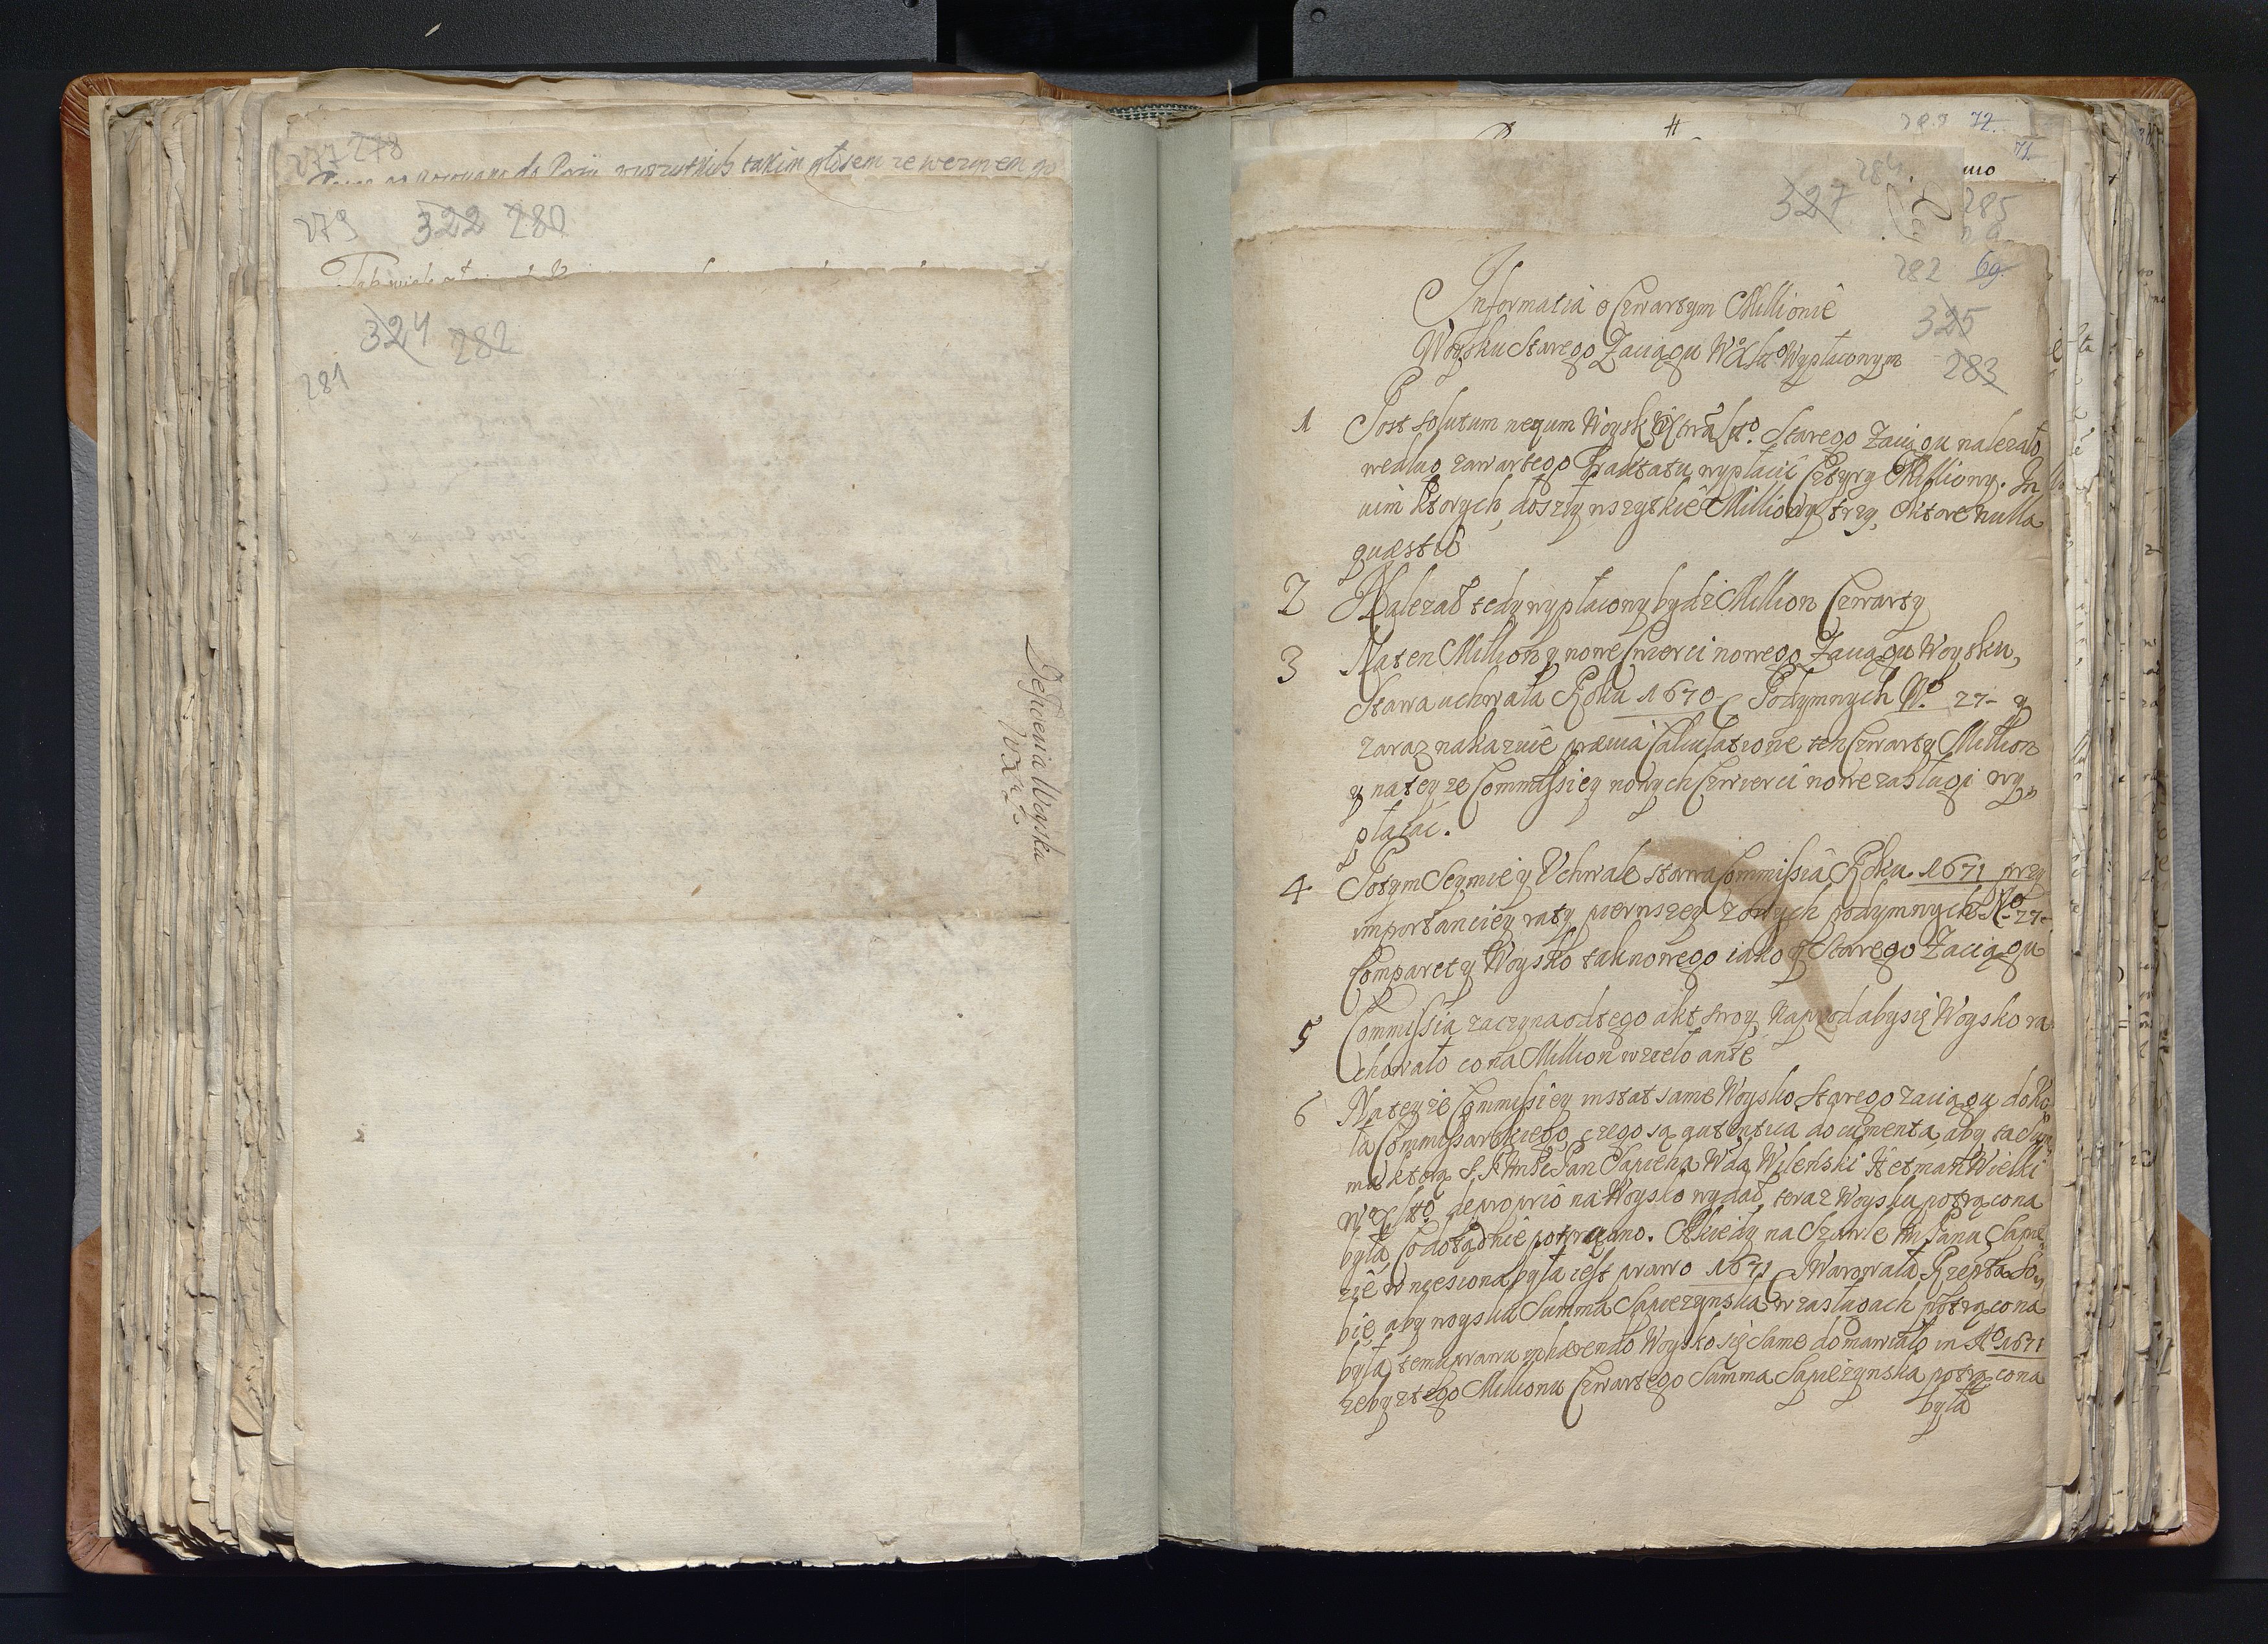 277 278
do Rąk wszystkich takim głosem ze wezwem
279 322 280
324 282
281
Desideria Woyska
WXL°
72.
71
uio
284
327
285
282 69.
325
283
Informatia o Czwartym Millionie
Woysku Starego Zaciągu WoXLto Wypłaconym
1 Post solutum nexum Woysk Starego Zaciągu nalezało
wedlug zawartego Traktatu wypłacić Cztyry Milliony. In
vim ktorych doszły wszytkie Milliony trzy, o ktore nulla
quæstio
2 Nalezał tedy wypłacony bydz Million Czwarty
3 Na ten Million y nowe Czwerci nowego Zaciągu Woysku,
Stawa uchwała Roku 1670 Podymnych No. 27 – y
zaraz nakazuie prævia Calculatione ten Czwarty Million
y na tey ze Commissiey nowych Czwierci nowe zasługi wy„
płacać.
4 Po tym Seymie y Uchwale stawa Commissia Roku 1671 przy
importanciey raty pierwszey z owych podymnych No 27–
Comparet y Woysko tak nowego iako y Starego Zaciągu
5 Commissia zaczyna od tego akt swoy Naprzod aby się Woysko ra
chowało co na Million wzieło ante
6 Na tey ze Commissiey instat same Woysko Starego zaciągu do Ko„
ła Commissarskiego, czego są autentica documenta, aby ta Sum
ma ktorą S. P. JmPe Pan Sapieha Wda Wileński Hetman Wielki
WXLtto de proprio na Woysko wydał, teraz Woysku potrącona
była Co dotąd nie potrącono. A kiedy na Szawle Im Panu Sapie
zie wniesiona była iest prawo 1671 Warowała Rzepta So„
bie aby woysku Summa Sapiezynska w zasługach potrącona
była temu prawu inhærendo Woysko się same domawiało in Ao 1671
zeby z tego Millionu Czwartego Summa Sapiezynska potrącona
była